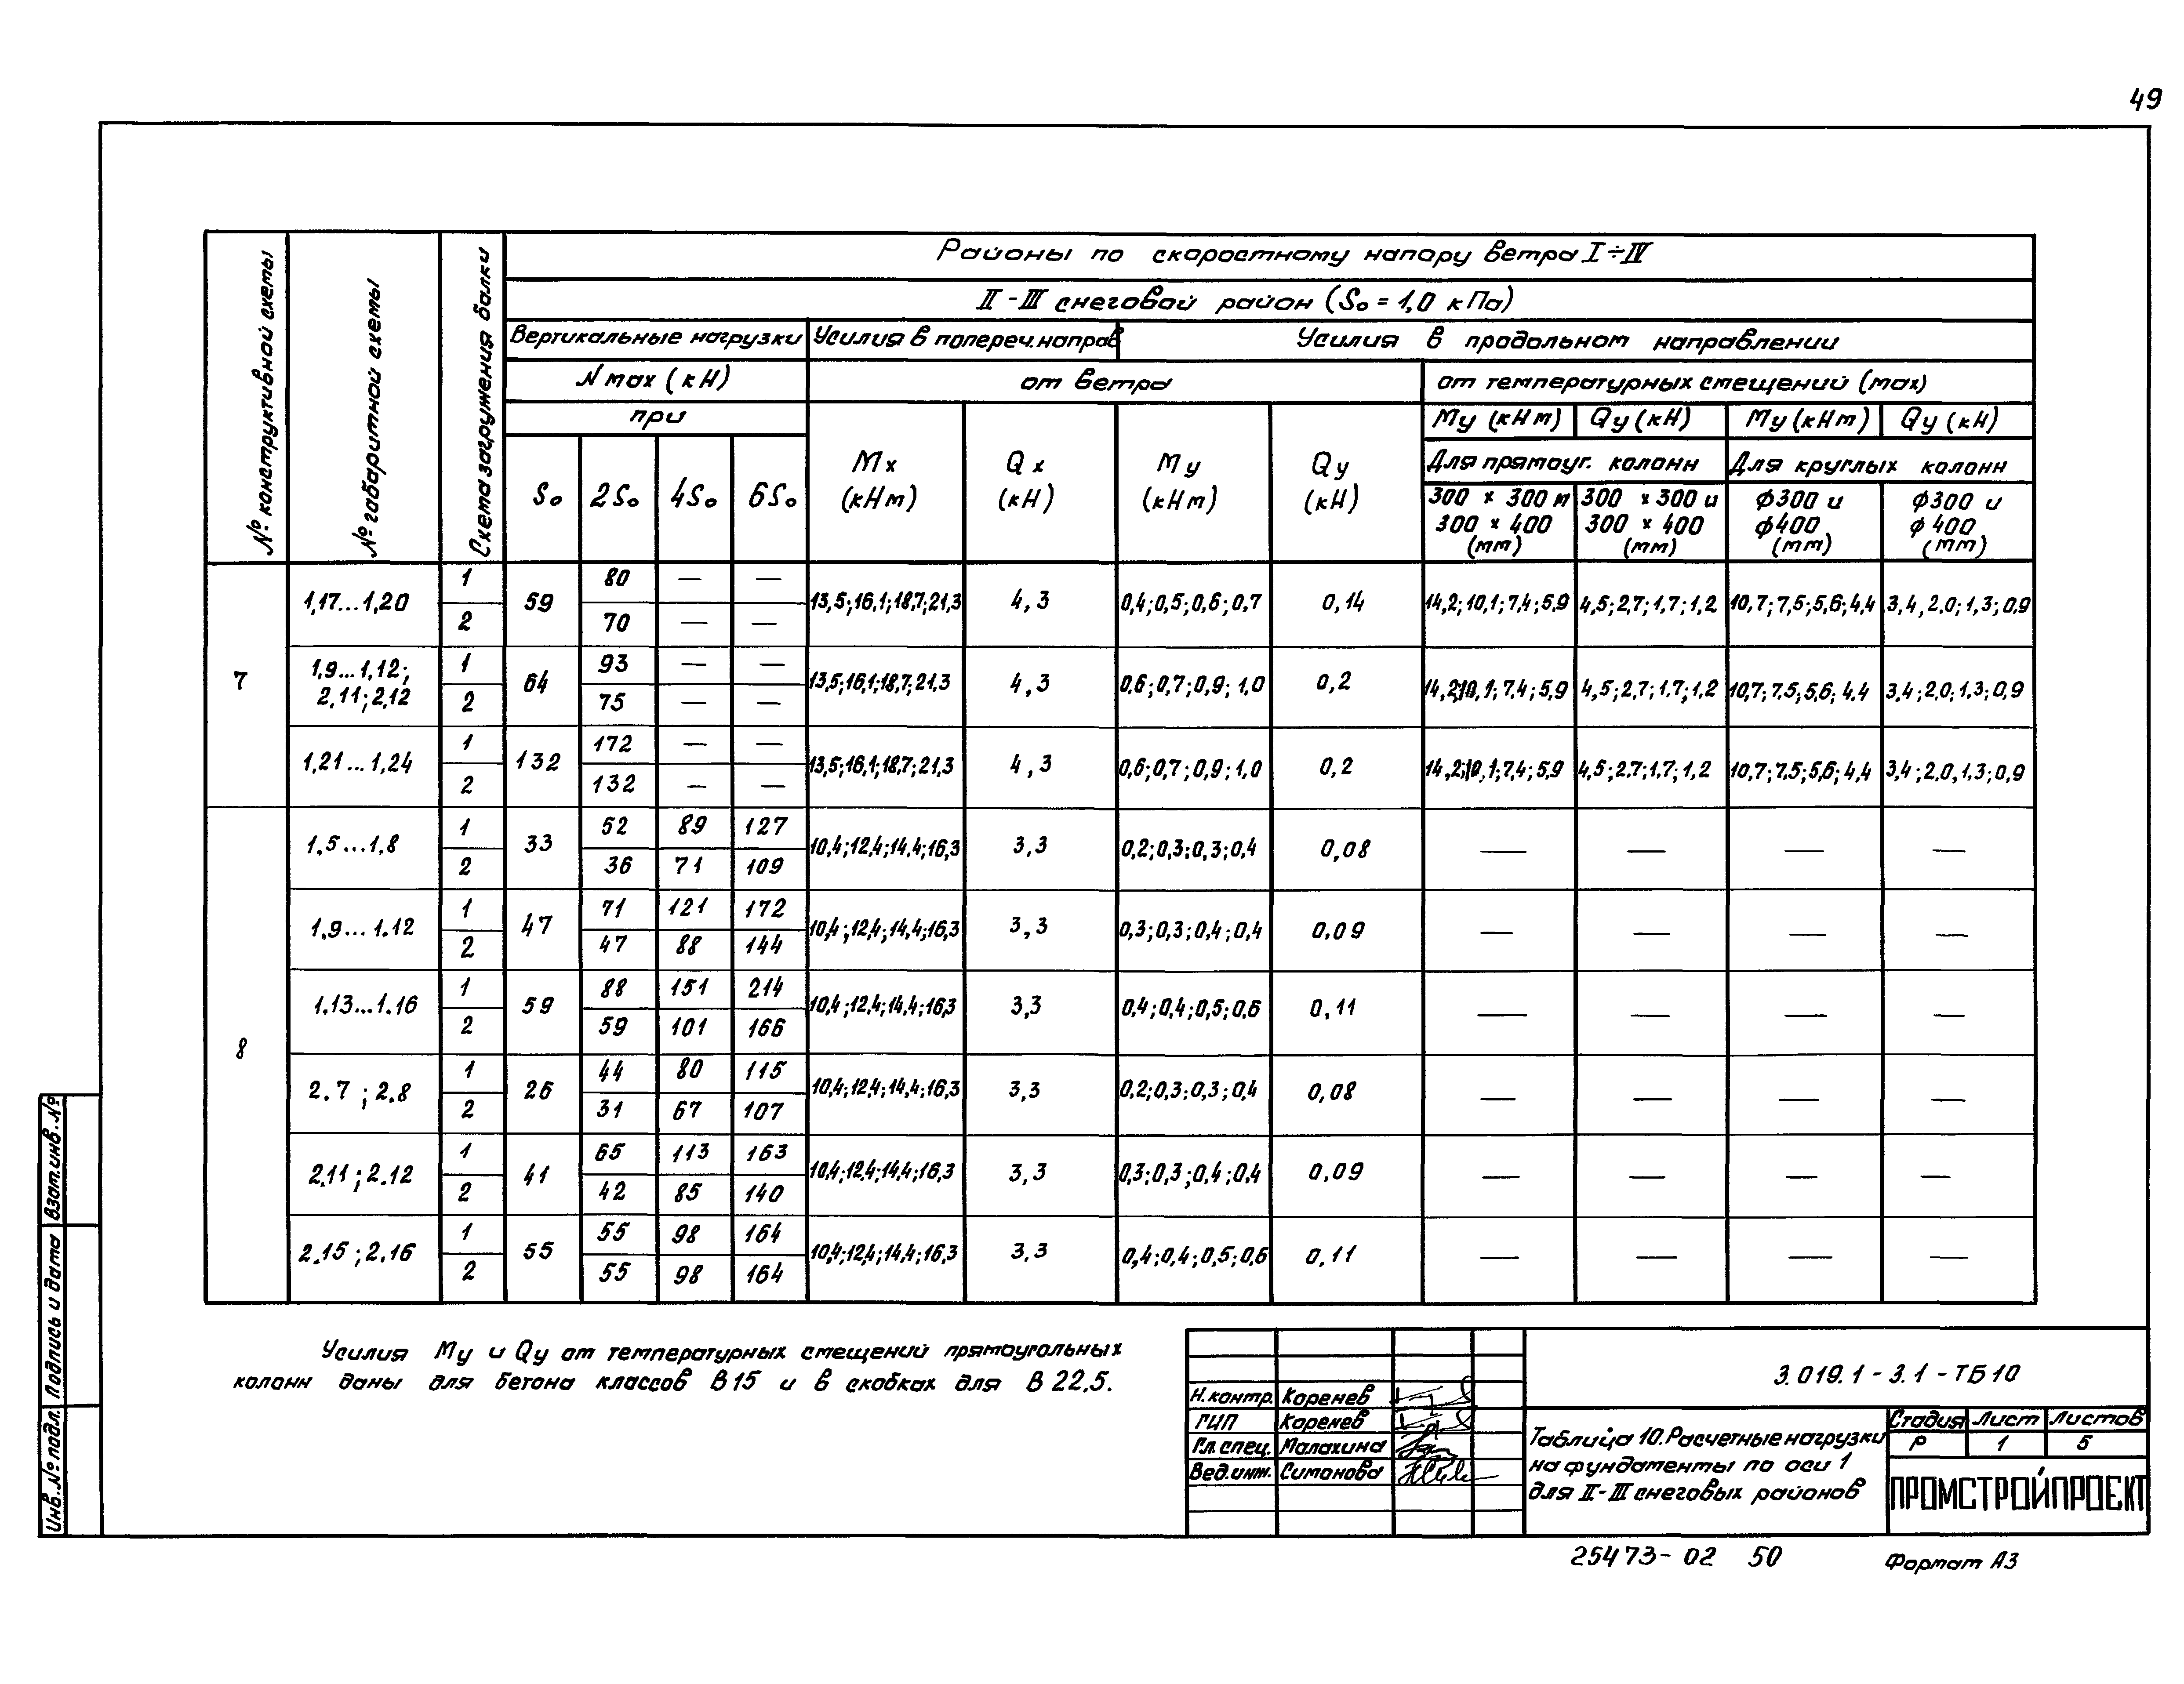 49
№ конструктивной схемы
№ габаритной схемы
Схема загружения балки
Районы по скоростному напору ветра I÷IV
II-III снеговой район (S₀ = 1,0 кПа)
Вертикальные нагрузки Усилия в попереч.направ Усилия в продольном направлении
N max (кН) от ветра от температурных смещений (max)
при Mу (кНм) Qу (кН) Mу (кНм) Qу (кН)
Для прямоуг. колонн Для круглых колонн
S₀ 2S₀ 4S₀ 6S₀ Mx (кНм) Qx (кН) Mу (кНм) Qу (кН)
300 × 300 и 300 × 400 (мм) 300 × 300 и 300 × 400 (мм) ϕ300 и ϕ400 (мм) ϕ300 и ϕ400 (мм)
7
1,17...1,20 1 59 80 — — 13,5;16,1;18,7;21,3 4,3 0,4;0,5;0,6;0,7 0,14 14,2;10,1;7,4;5,9 4,5;2,7;1,7;1,2 10,7;7,5;5,6;4,4 3,4,2,0;1,3;0,9
2 70 — —
1,9...1,12; 2.11;2.12 1 64 93 — — 13,5;16,1;18,7;21,3 4,3 0,6;0,7;0,9;1,0 0,2 14,2;10,1;7,4;5,9 4,5;2,7;1,7;1,2 10,7;7,5;5,6;4,4 3,4;2,0;1,3;0,9
2 75 — —
1,21...1,24 1 132 172 — — 13,5;16,1;18,7;21,3 4,3 0,6;0,7;0,9;1,0 0,2 14,2;10,1;7,4;5,9 4,5;2,7;1,7;1,2 10,7;7,5;5,6;4,4 3,4;2,0,1,3;0,9
2 132 — —
8
1.5...1.8 1 33 52 89 127 10,4;12,4;14,4;16,3 3,3 0,2;0,3;0,3;0,4 0,08 — — — —
2 36 71 109
1.9...1.12 1 47 71 121 172 10,4;12,4;14,4;16,3 3,3 0,3;0,3;0,4;0,4 0,09 — — — —
2 47 88 144
1.13...1.16 1 59 88 151 214 10,4;12,4;14,4;16,3 3,3 0,4;0,4;0,5;0,6 0,11 — — — —
2 59 101 166
2.7;2.8 1 26 44 80 115 10,4;12,4;14,4;16,3 3,3 0,2;0,3;0,3;0,4 0,08 — — — —
2 31 67 107
2.11;2.12 1 41 65 113 163 10,4;12,4;14,4;16,3 3,3 0,3;0,3;0,4;0,4 0,09 — — — —
2 42 85 140
2.15;2.16 1 55 55 98 164 10,4;12,4;14,4;16,3 3,3 0,4;0,4;0,5;0,6 0,11 — — — —
2 55 98 164
Усилия Mу и Qу от температурных смещений прямоугольных
колонн даны для бетона классов В15 и в скобках для В 22,5.
Взам.инв.№
Подпись и дата
Инв.№ подл.
Н.контр. Коренев
ГИП Коренев
Гл.спец. Малахина
Вед.инж. Симонова
3.019.1-3.1-ТБ10
Таблица 10.Расчетные нагрузки
на фундаменты по оси 1
для II-III снеговых районов
Стадия Лист Листов
Р 1 5
ПРОМСТРОЙПРОЕКТ
25473-02 50
Формат А3